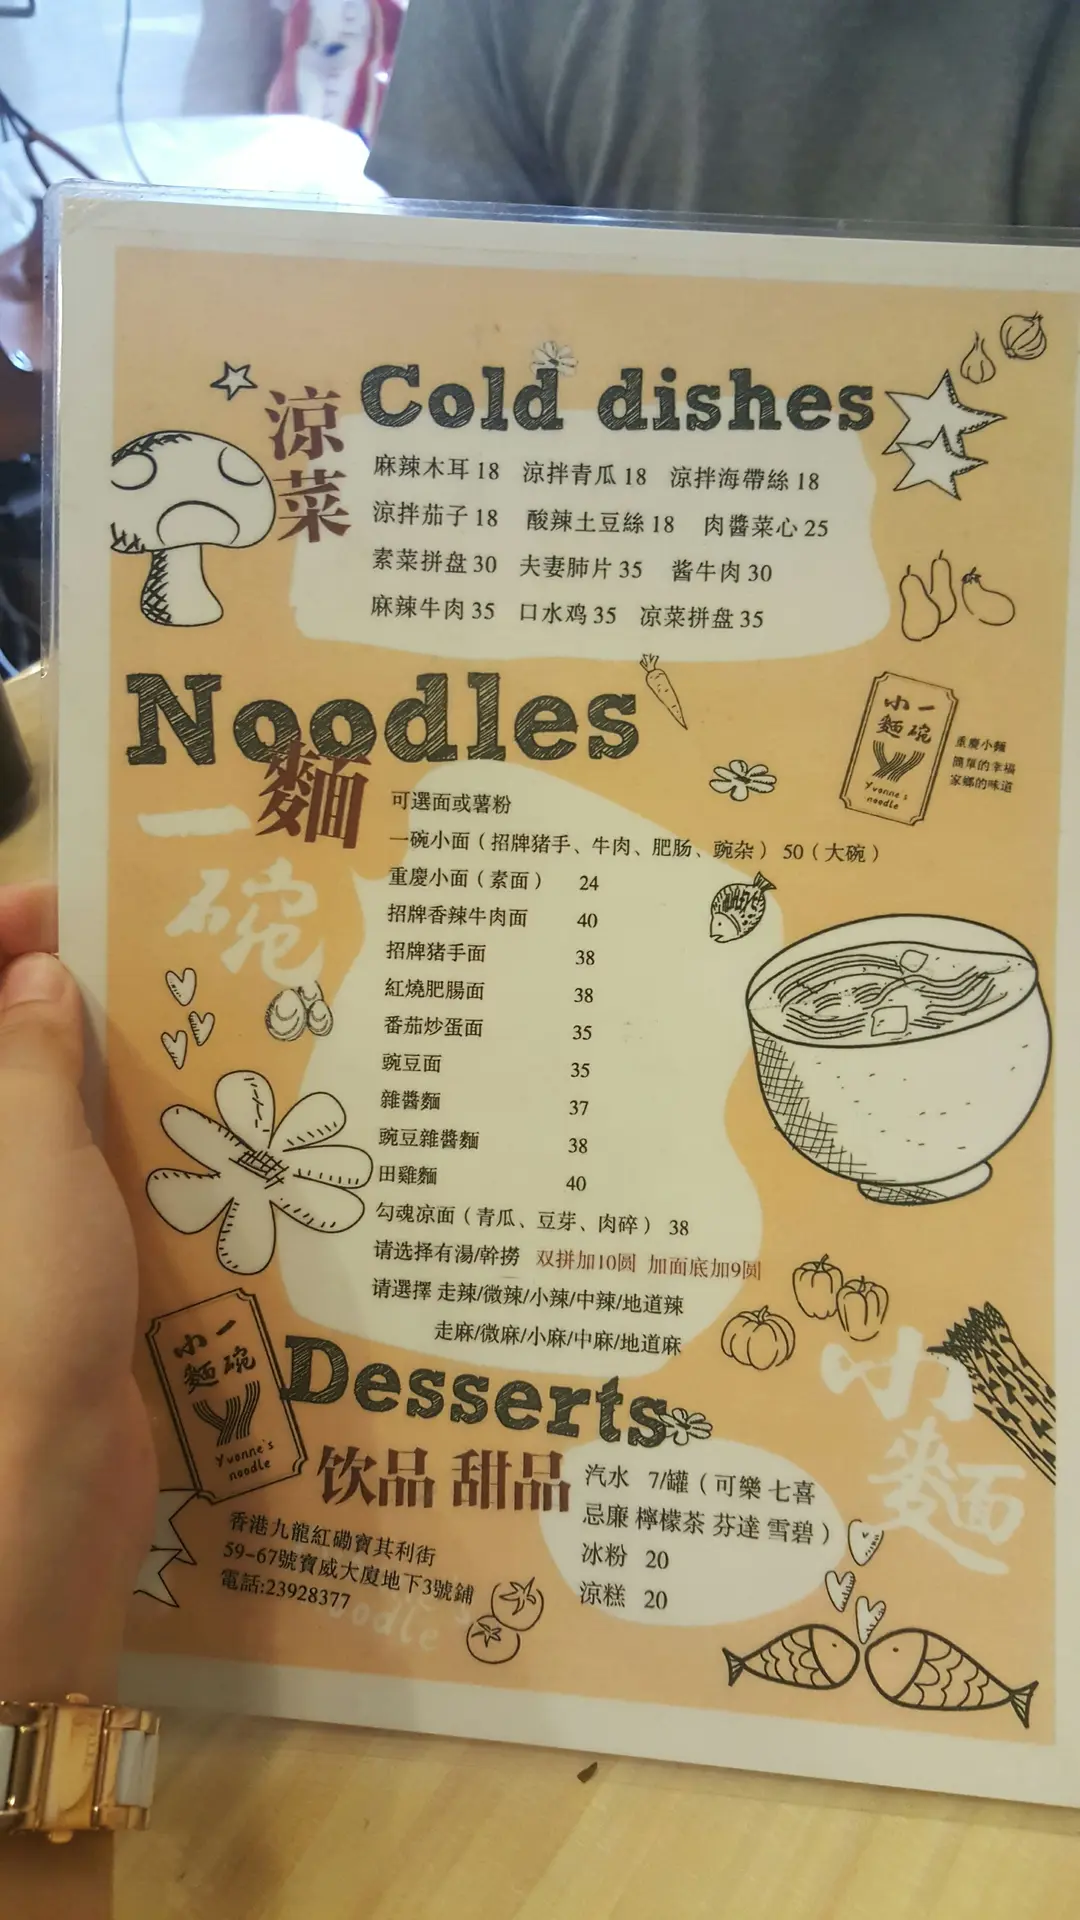 涼菜
Cold dishes
麻辣木耳 18 涼拌青瓜 18 涼拌海帶絲 18
涼拌茄子 18 酸辣土豆絲 18 肉醬菜心 25
素菜拼盘 30 夫妻肺片 35 酱牛肉 30
麻辣牛肉 35 口水鸡 35 凉菜拼盘 35
Noodles
麵
小一
麵碗
Yvonne's
noodle
重慶小麵
簡單的幸福
家鄉的味道
一碗
可選面或薯粉
一碗小面（招牌猪手、牛肉、肥肠、豌杂） 50（大碗）
重慶小面（素面） 24
招牌香辣牛肉面 40
招牌猪手面 38
紅燒肥腸面 38
番茄炒蛋面 35
豌豆面 35
雜醬麵 37
豌豆雜醬麵 38
田雞麵 40
勾魂凉面（青瓜、豆芽、肉碎） 38
请选择有湯/幹撈 双拼加10圆 加面底加9圆
请選擇 走辣/微辣/小辣/中辣/地道辣
走麻/微麻/小麻/中麻/地道麻
小麵
小一
麵碗
Yvonne's
noodle
Desserts
饮品 甜品
汽水 7/罐（可樂 七喜
忌廉 檸檬茶 芬達 雪碧）
冰粉 20
涼糕 20
香港九龍紅磡寶其利街
59-67號寶威大廈地下3號鋪
電話:23928377
noodle